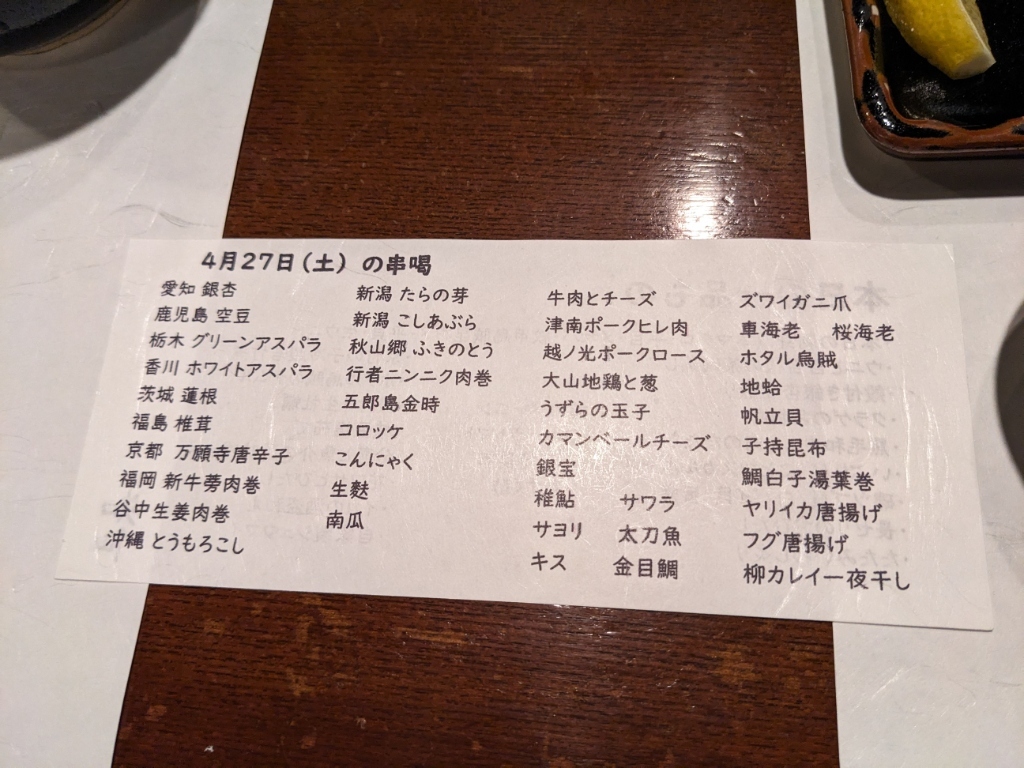 4月27日(土) の串喝
愛知 銀杏
鹿児島 空豆
栃木 グリーンアスパラ
香川 ホワイトアスパラ
茨城 蓮根
福島 椎茸
京都 万願寺唐辛子
福岡 新牛蒡肉巻
谷中生姜肉巻
沖縄 とうもろこし
新潟 たらの芽
新潟 こしあぶら
秋山郷 ふきのとう
行者ニンニク肉巻
五郎島金時
コロッケ
こんにゃく
生麩
南瓜
牛肉とチーズ
津南ポークヒレ肉
越ノ光ポークロース
大山地鶏と葱
うずらの玉子
カマンベールチーズ
銀宝
稚鮎 サワラ
サヨリ 太刀魚
キス 金目鯛
ズワイガニ爪
車海老 桜海老
ホタル烏賊
地蛤
帆立貝
子持昆布
鯛白子湯葉巻
ヤリイカ唐揚げ
フグ唐揚げ
柳カレイ一夜干し